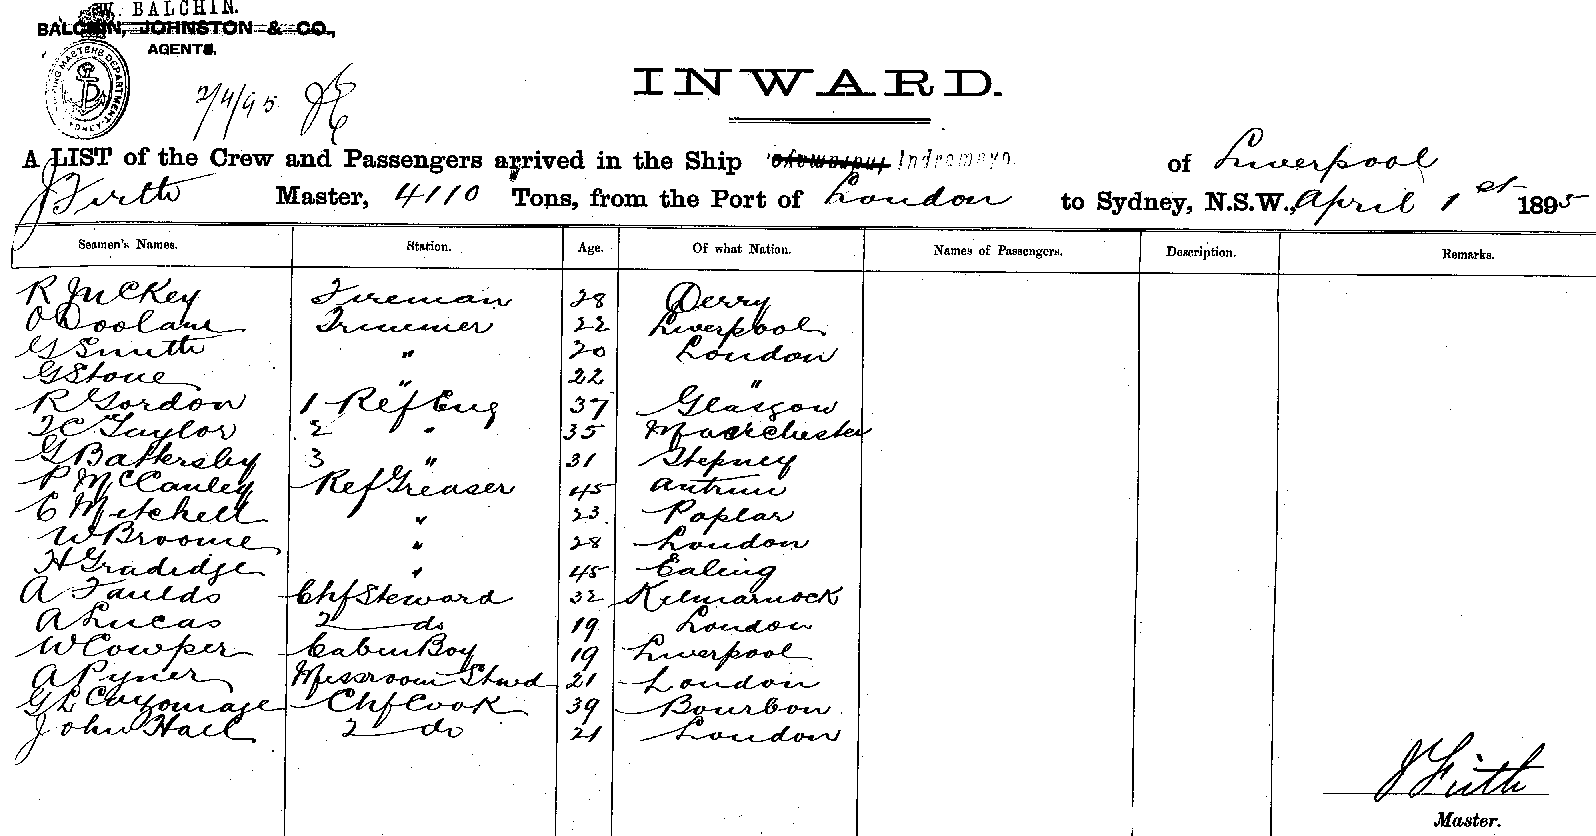 W. BALCHIN.
BALCHIN, JOHNSTON & CO.,
AGENTS.
2/4/95
INWARD.
A LIST of the Crew and Passengers arrived in the Ship Indramayo Indramayo. of Liverpool
J Firth Master, 4110 Tons, from the Port of London to Sydney, N.S.W., April 1st 1895
Seamen's Names. Station. Age. Of what Nation. Names of Passengers. Description. Remarks.
R McKey Fireman 28 Derry
O Doolane Trimmer 22 Liverpool
G Smith " 20 London
G Stone " 22 "
R Gordon 1 Ref Eng 37 Glasgow
T C Taylor 2 " 35 Manchester
G Battersby 3 " 31 Stepney
P McCauley Ref Greaser 45 Antrim
C Mitchell " 23 Poplar
W Broome " 28 London
H Gradidge " 45 Ealing
A Faulds Chf Steward 32 Kilmarnock
A Lucas 2 do 19 London
W Cowper Cabin Boy 19 Liverpool
A Pyner Messroom Stwd 21 London
G L Chf Cook 39 Bourbon
John Hall 2 do 21 London
J Firth
Master.